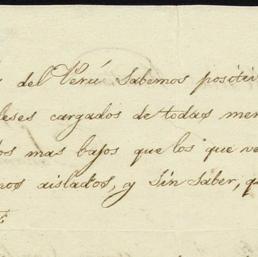 del Perú Sabemos positiv
leses cargados de todas mer
os mas bajos que los que ve
mos aislados, y Sin Saber, q